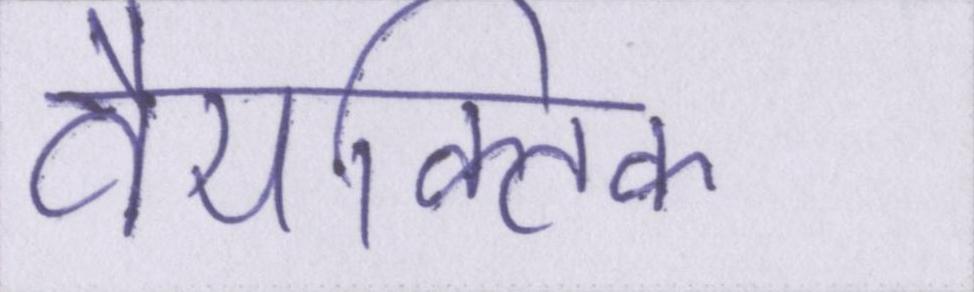 वैयक्तिक